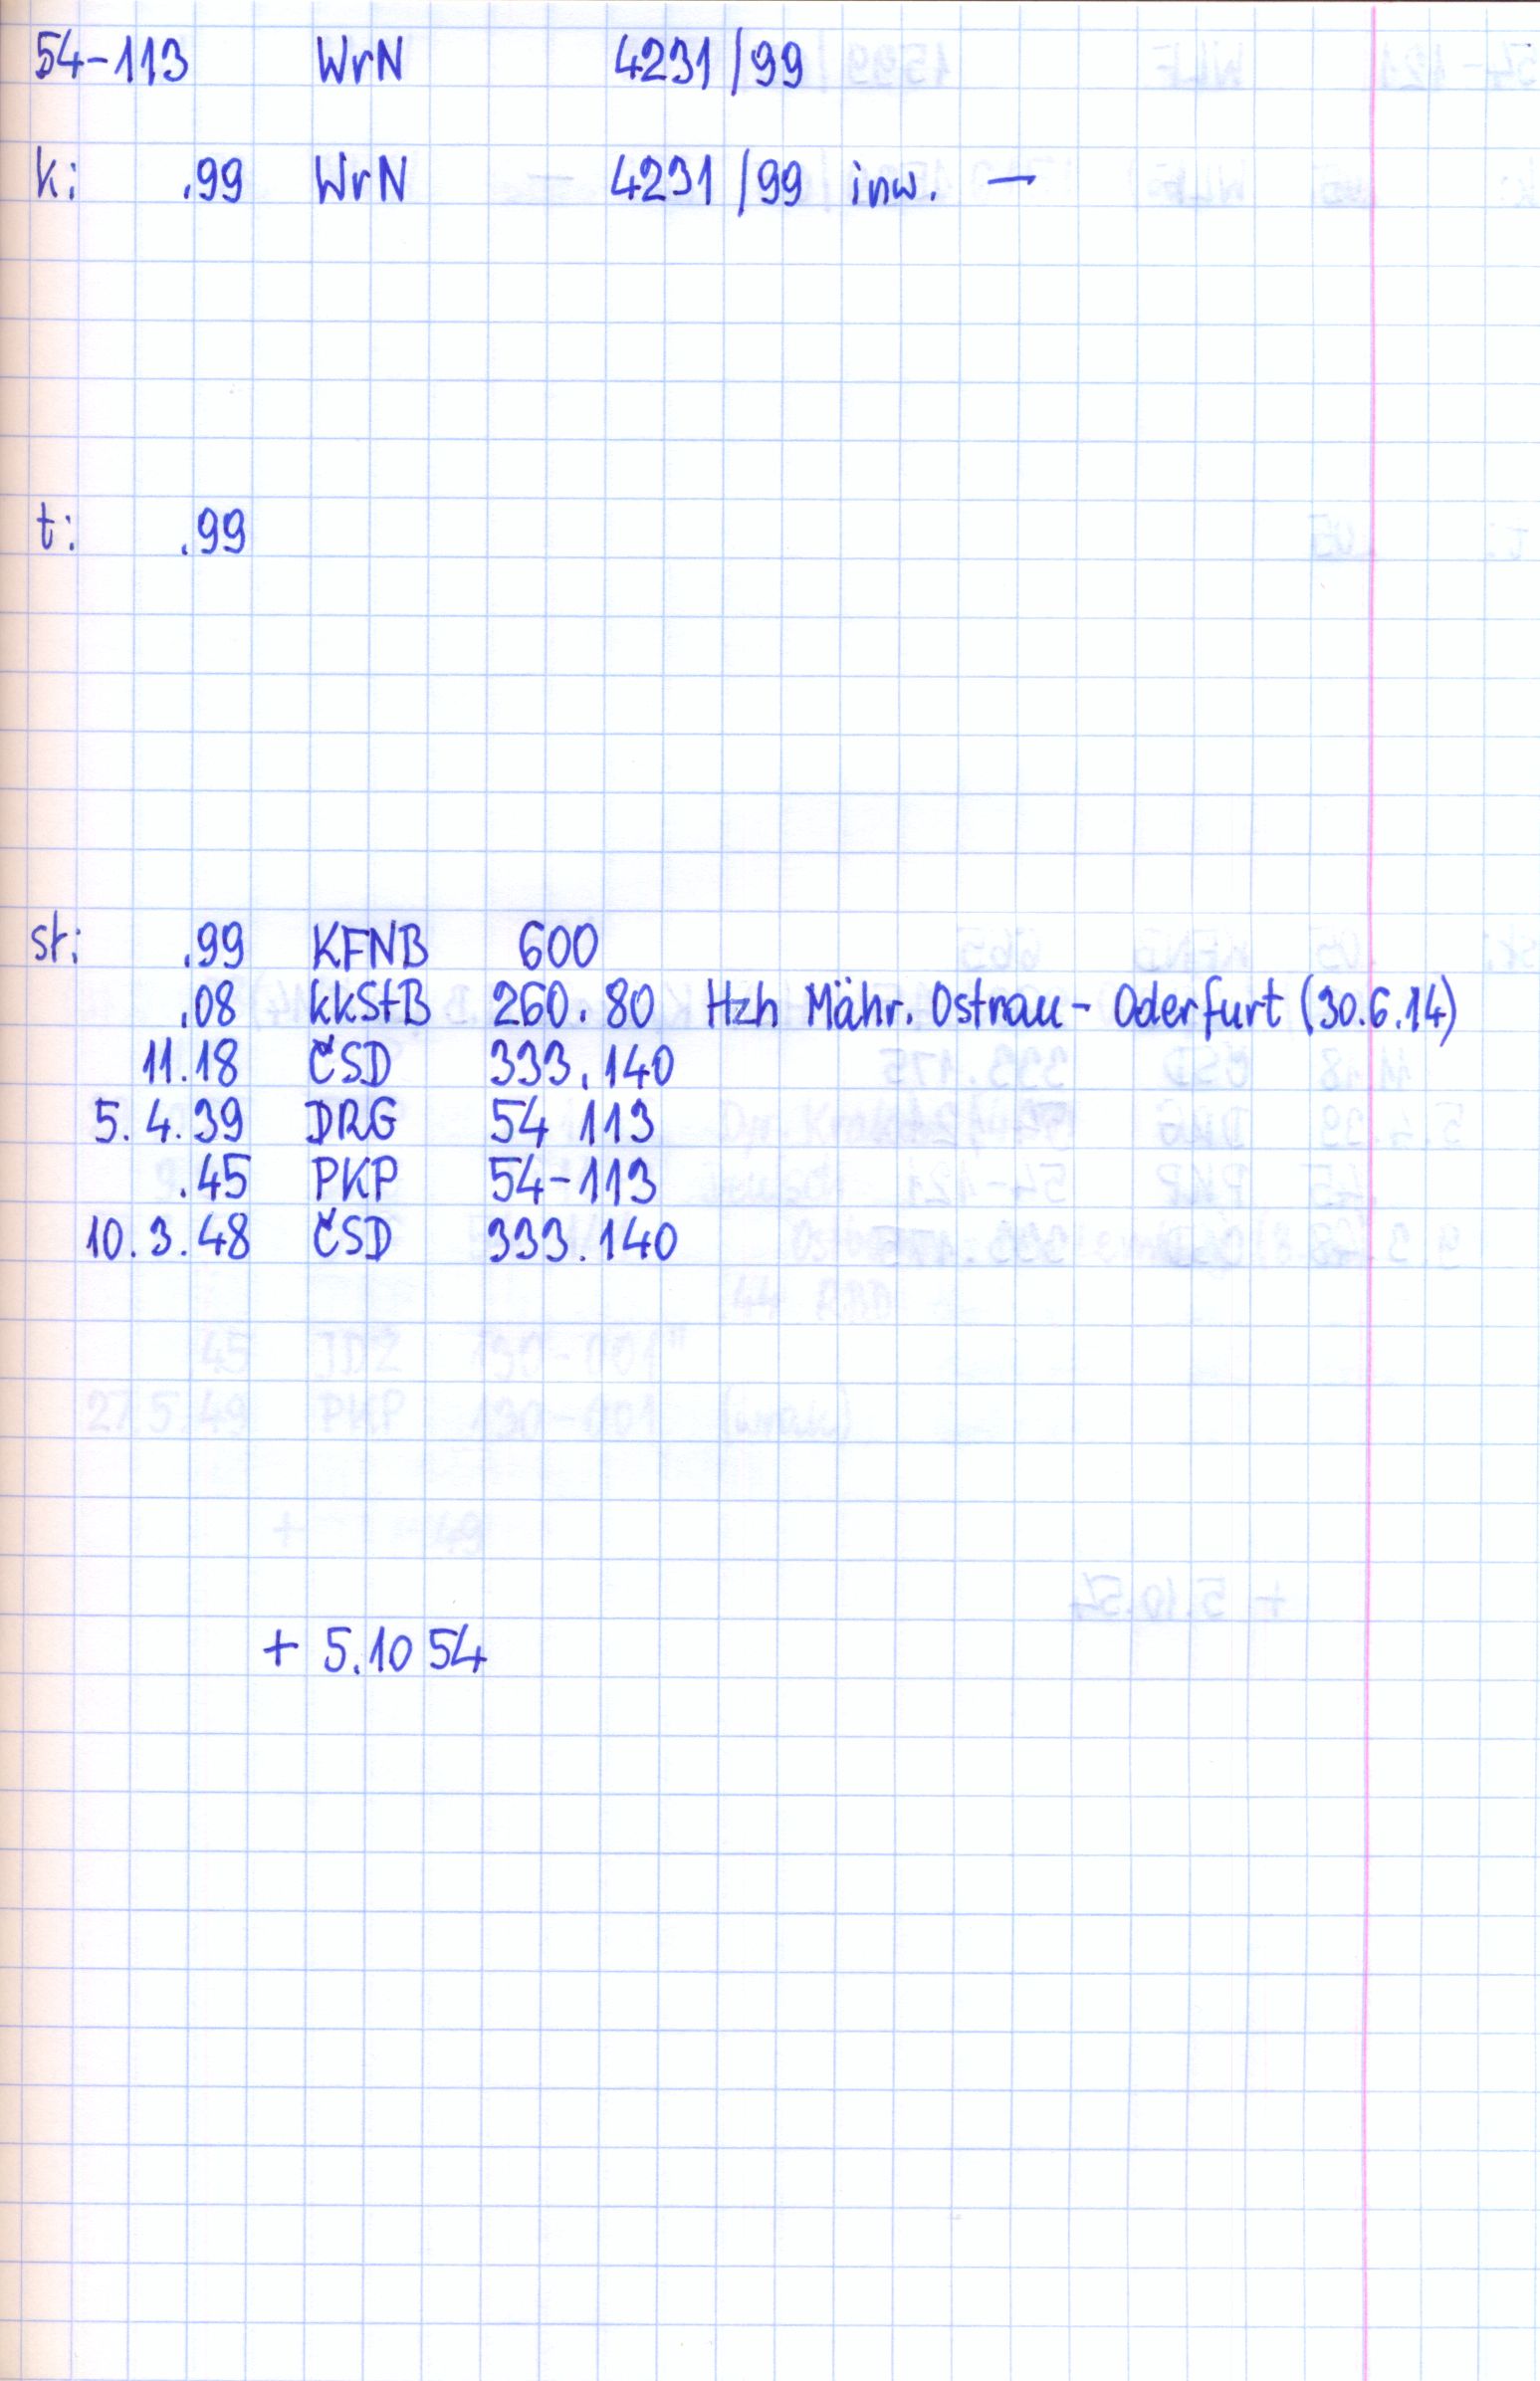 54-113 WrN 4231/99
k: .99 WrN 4231/99 inw. —
t: .99
st: .99 KFNB 600
.08 kkStB 260.80 Hzh Mähr. Ostrau - Oderfurt (30.6.14)
11.18 ČSD 333.140
5.4.39 DRG 54 113
.45 PKP 54-113
10.3.48 ČSD 333.140
+ 5.10 54